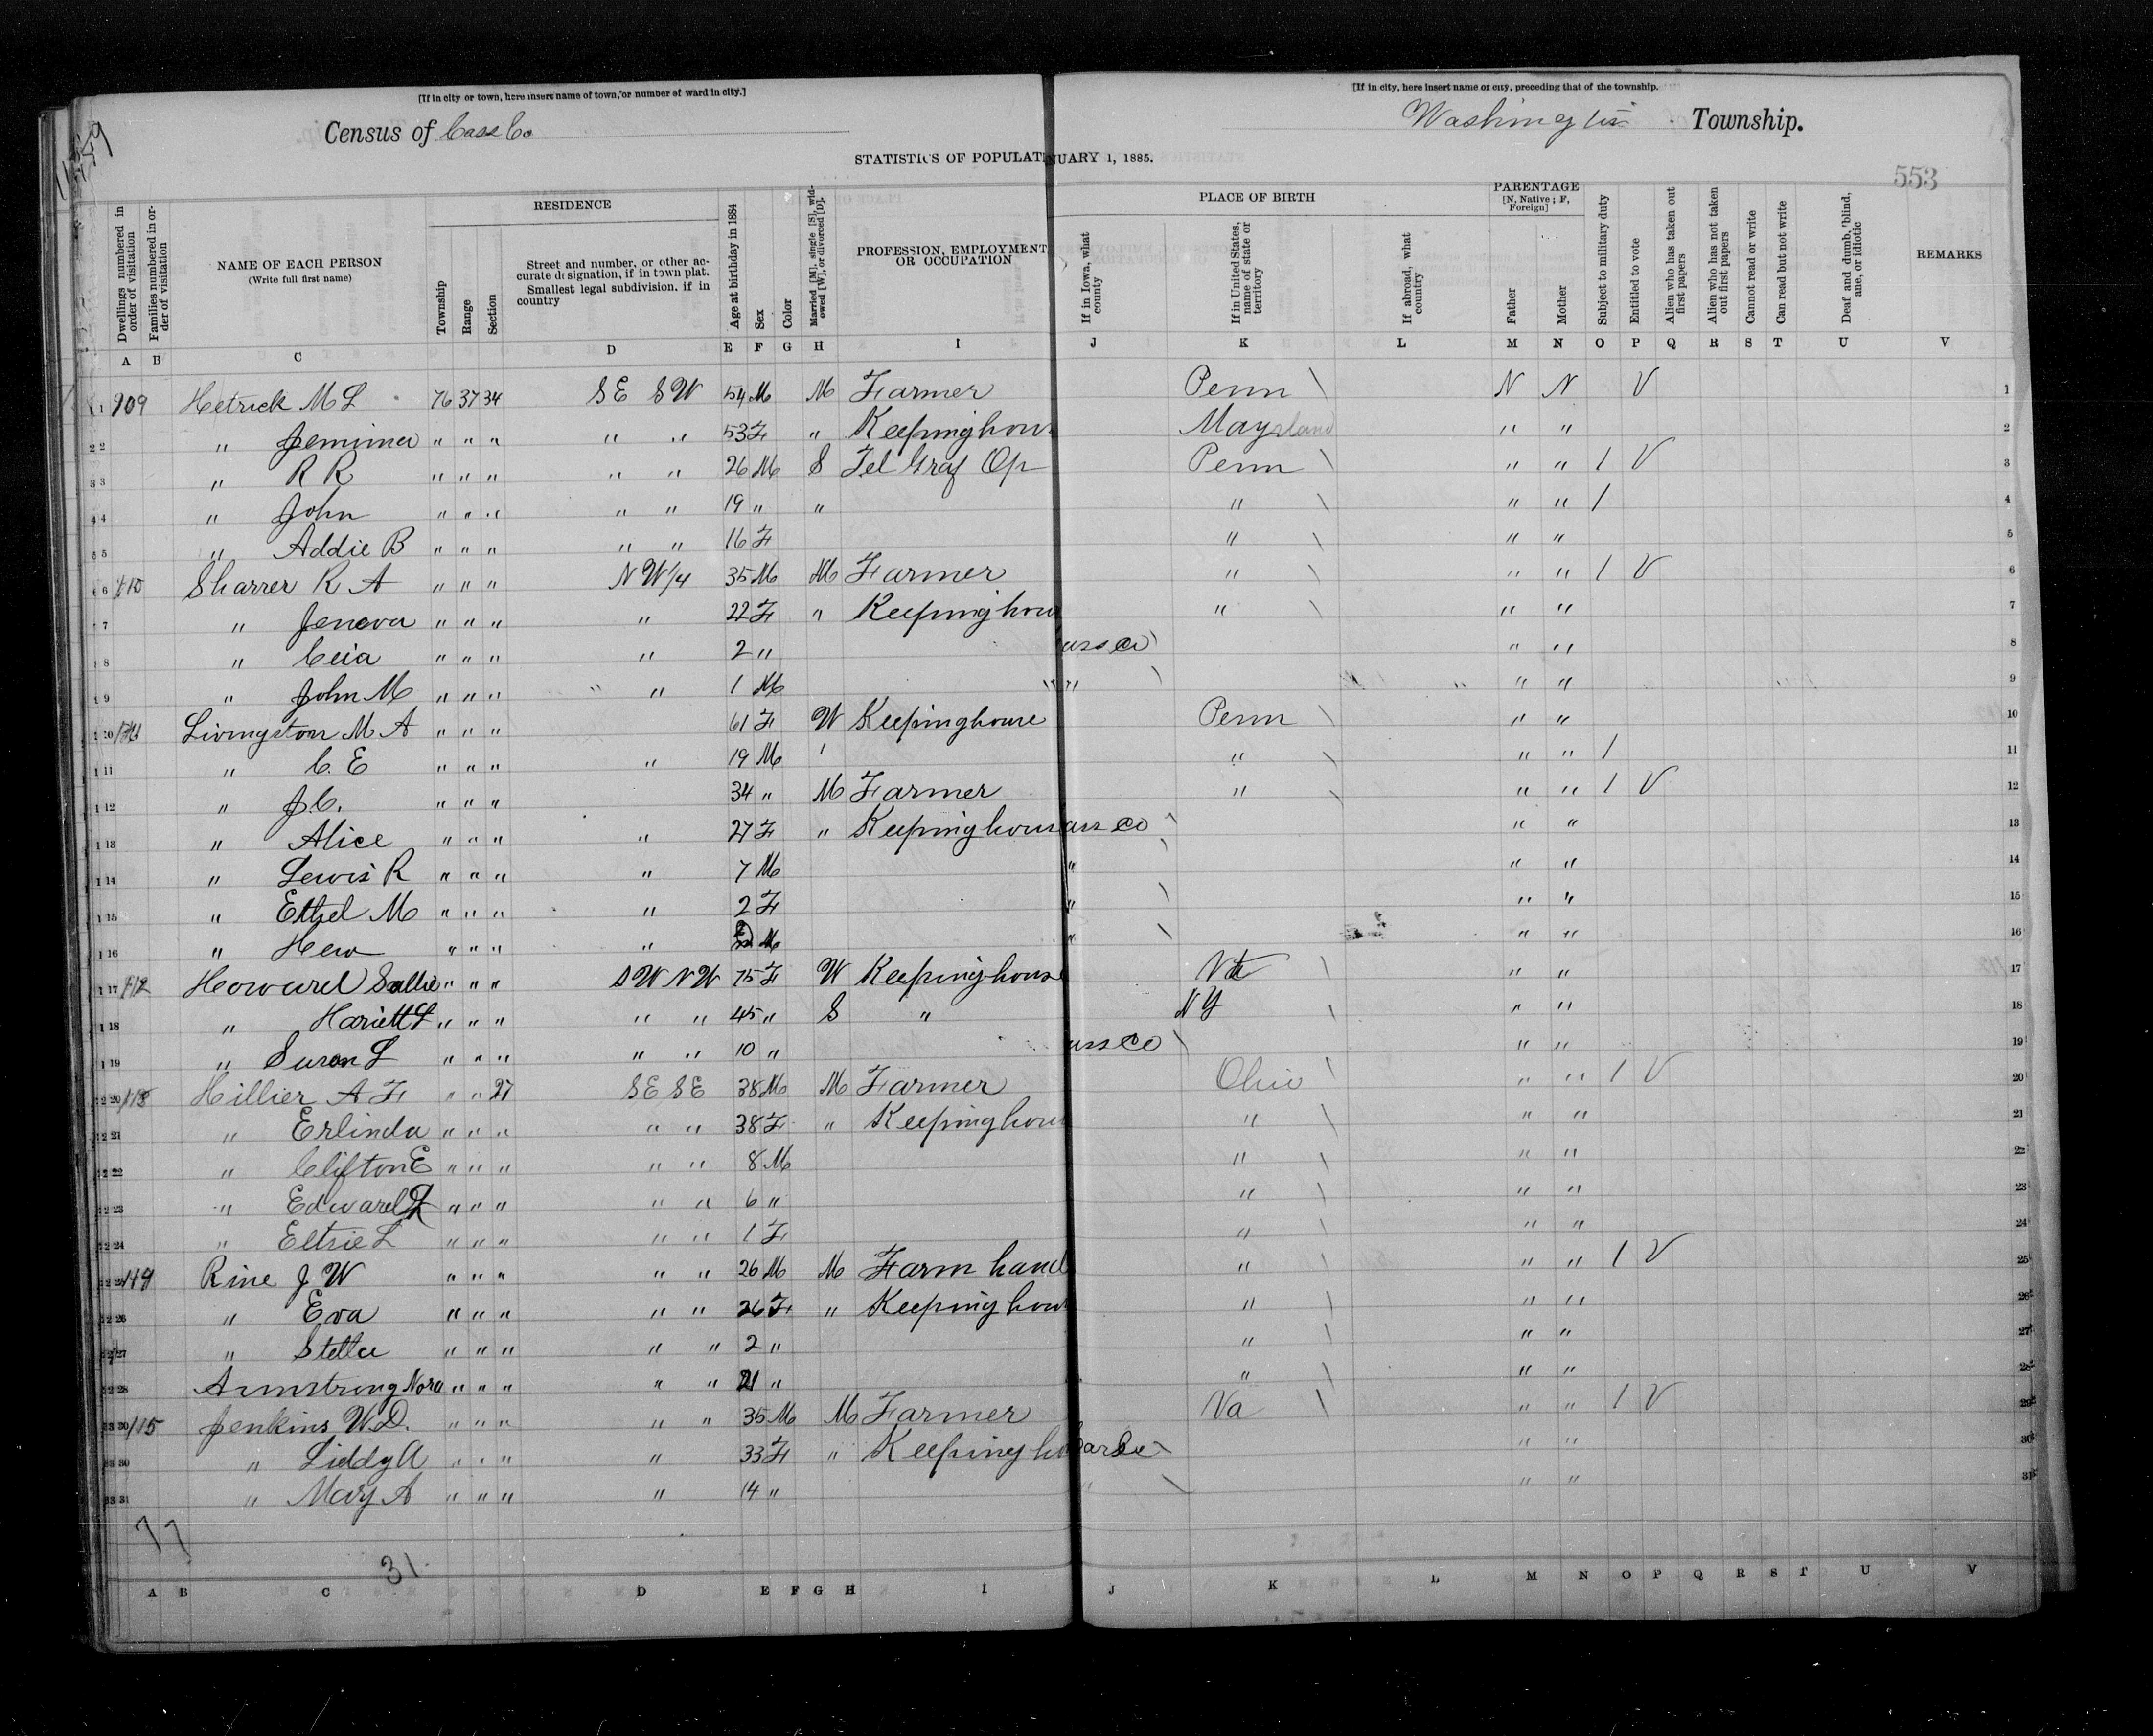 [If in city or town, here insert name of town, or number of ward in city.]
[If in city, here insert name or city, preceding that of the township.
Census of Cass Co
Washington Township.
STATISTICS OF POPULAT NUARY 1, 1885.
553
RESIDENCE
PLACE OF BIRTH
PARENTAGE
[N, Native ; F, Foreign]
Dwellings numbered in order of visitation
Families numbered in order of visitation
NAME OF EACH PERSON
(Write full first name)
Township
Range
Section
Street and number, or other accurate designation, if in town plat. Smallest legal subdivision, if in country
Age at birthday in 1884
Sex
Color
Married [M], single [S], widowed [W], or divorced [D].
PROFESSION, EMPLOYMENT OR OCCUPATION
If in Iowa, what county
If in United States, name of state or territory
If abroad, what country
Father
Mother
Subject to military duty
Entitled to vote
Alien who has taken out first papers
Alien who has not taken out first papers
Cannot read or write
Can read but not write
Deaf and dumb, blind, ane, or idiotic
REMARKS
A B C D E F G H I J K L M N O P Q R S T U V
1 109 Hetrick M L 76 37 34 SE SW 54 M M Farmer Penn \ N N V 1
2 " Jemima " " " " " 53 F " Keeping hous Maryland " " 2
3 " R R " " " " " 26 M S Tel Graf Op Penn \ " " 1 V 3
4 " John " " " " " 19 " " " \ " " 1 4
5 " Addie B " " " " " 16 F " \ " " 5
6 110 Sharrer R A " " " NW/4 35 M M Farmer " \ " " 1 V 6
7 " Jeneva " " " " 22 F " Keeping hou " \ " " 7
8 " Ceia " " " " 2 " ass Co \ " " 8
9 " John M " " " " 1 M " " \ " " 9
10 Livingston M A " " " 61 F W Keeping house Penn \ " " 10
11 " C. E " " " " 19 M ' " \ " " 1 11
12 " J C. " " " 34 " M Farmer " \ " " 1 V 12
13 " Alice " " " " 27 F " Keeping hous ass Co \ " " 13
14 " Lewis R " " " " 7 M " \ " " 14
15 " Ethel M " " " " 2 F " \ " " 15
16 " Hew " " " " M " \ " " 16
17 112 Howard Sallie " " " SW NW 75 F W Keeping house \ " " 17
18 " Hariett L " " " " " 45 " S " NY \ " " 18
19 " Suran L " " " " " 10 " ass Co \ " " 19
20 Hillier A F " " 27 SE SE 38 M M Farmer Ohio \ " " 1 V 20
21 " Erlinda " " " " " 38 F " Keeping hou " \ " " 21
22 " Clifton E " " " " " 8 M " \ " " 22
23 " Edward " " " " " 6 " " \ " " 23
24 " Eltsie L " " " " " 1 F " \ " " 24
25 Rine J W " " " " " 26 M M Farm hand " \ " " 1 V 25
26 " Eva " " " " " 26 F " Keeping hou " \ " " 26
27 " Stella " " " " " 2 " " \ " " 27
28 Armstrong Nora " " " " " 21 " " \ " " 28
30 115 Jenkins W.D. " " " " " 35 M M Farmer Va \ " " 1 V 29
30 " Liddy A " " " " 33 F " Keeping ho \ " " 30
31 " Mary A " " " " 14 " " \ " " 31
77
31
A B C D E F G H I J K L M N O P Q R S T U V